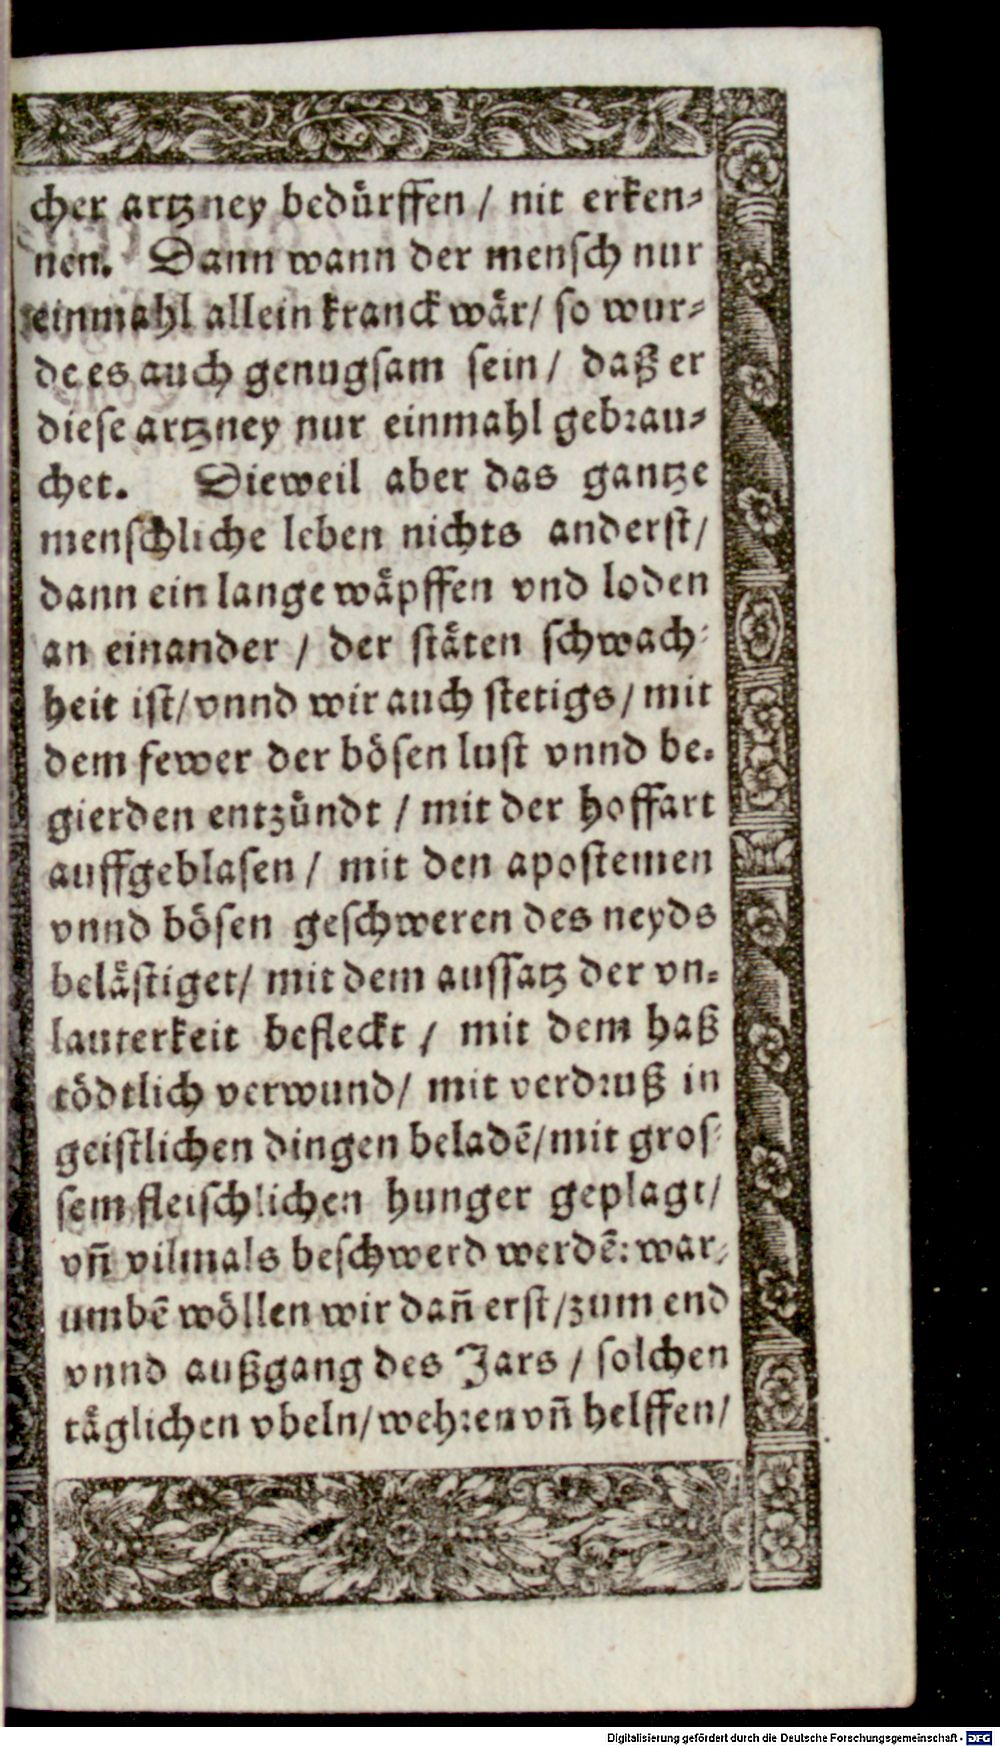 cher artzney bedürffen / nit erken⸗
nen. Dann wann der mensch nur
einmahl allein kranck wär/ so wur⸗
de es auch genugsam sein / daß er
diese artzney nur einmahl gebrau⸗
chet. Dieweil aber das gantze
menschliche leben nichts anderst/
dann ein lange wäpffen vnd loden
an einander / der stäten schwach⸗
heit ist/ vnnd wir auch stetigs / mit
dem fewer der bösen lust vnnd be⸗
gierden entzündt / mit der hoffart
auffgeblasen / mit den apostemen
vnnd bösen geschweren des neyds
belästiget/ mit dem aussatz der vn⸗
lauterkeit befleckt / mit dem haß
tödtlich verwund/ mit verdruß in
geistlichen dingen beladē/ mit gros⸗
sem fleischlichen hunger geplagt/
vñ vilmals beschwerd werdē: war⸗
umbē wöllen wir dañ erst/ zum end
vnnd außgang des Jars / solchen
täglichen vbeln/ wehren vñ helffen/
Digitalisierung gefördert durch die Deutsche Forschungsgemeinschaft - DFG